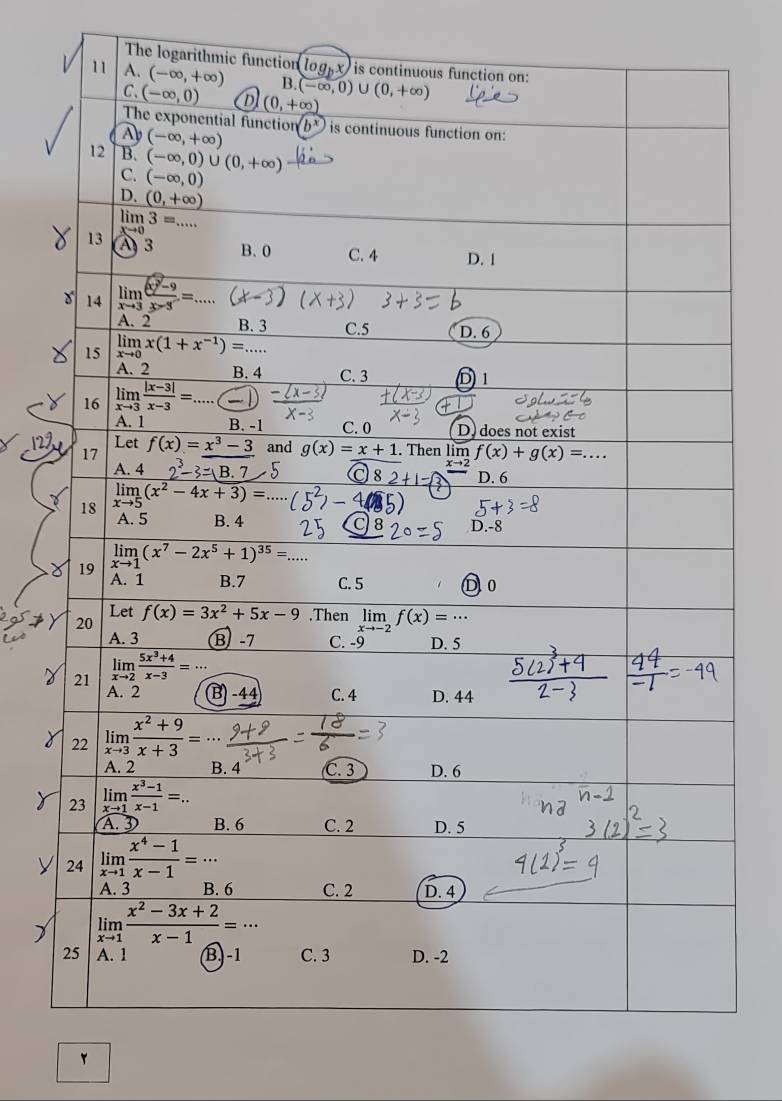 11 The logarithmic function log_b x is continuous function on:
A. (−∞, +∞) B. (−∞, 0) ∪ (0, +∞)
C. (−∞, 0) D. (0, +∞)
12 The exponential function b^x is continuous function on:
A. (−∞, +∞)
B. (−∞, 0) ∪ (0, +∞)
C. (−∞, 0)
D. (0, +∞)
13 lim x→0 3 =.....
A. 3 B. 0 C. 4 D. 1
14 lim x→3 (x²−9)/(x−3) =..... (x−3) (x+3) 3+3=6
A. 2 B. 3 C.5 D. 6
15 lim x→0 x(1 + x⁻¹) =.....
A. 2 B. 4 C. 3 D 1
16 lim x→3 |x−3|/(x−3) =..... −1 −(x−3)/(x−3) +(x−3)/(x−3) +1
A. 1 B. -1 C. 0 D. does not exist
17 Let f(x) = x³ − 3 and g(x) = x + 1. Then lim x→2 f(x) + g(x) =....
A. 4 2³−3= B. 7 5 C 8 2+1=3 D. 6
18 lim x→5 (x² − 4x + 3) =..... (5²) − 4(5) 5+3=8
A. 5 B. 4 25 C 8 20=5 D.-8
19 lim x→1 (x⁷ − 2x⁵ + 1)³⁵ =.....
A. 1 B.7 C. 5 D. 0
20 Let f(x) = 3x² + 5x − 9 .Then lim x→−2 f(x) = ⋯
A. 3 B -7 C. -9 D. 5
21 lim x→2 (5x³+4)/(x−3) = ⋯ (5(2)³+4)/(2−3) 44/−1 = −44
A. 2 B -44 C. 4 D. 44
22 lim x→3 (x² + 9)/(x + 3) = ⋯ (9+9)/(3+3) = 18/6 = 3
A. 2 B. 4 C. 3 D. 6
23 lim x→1 (x³−1)/(x−1) =.. na^(n−1) 3(1)²=3
A. 3 B. 6 C. 2 D. 5
24 lim x→1 (x⁴ − 1)/(x − 1) = ⋯ 4(1)³=4
A. 3 B. 6 C. 2 D. 4
25 lim x→1 (x² − 3x + 2)/(x − 1) = ⋯
A. 1 B. -1 C. 3 D. -2
٢